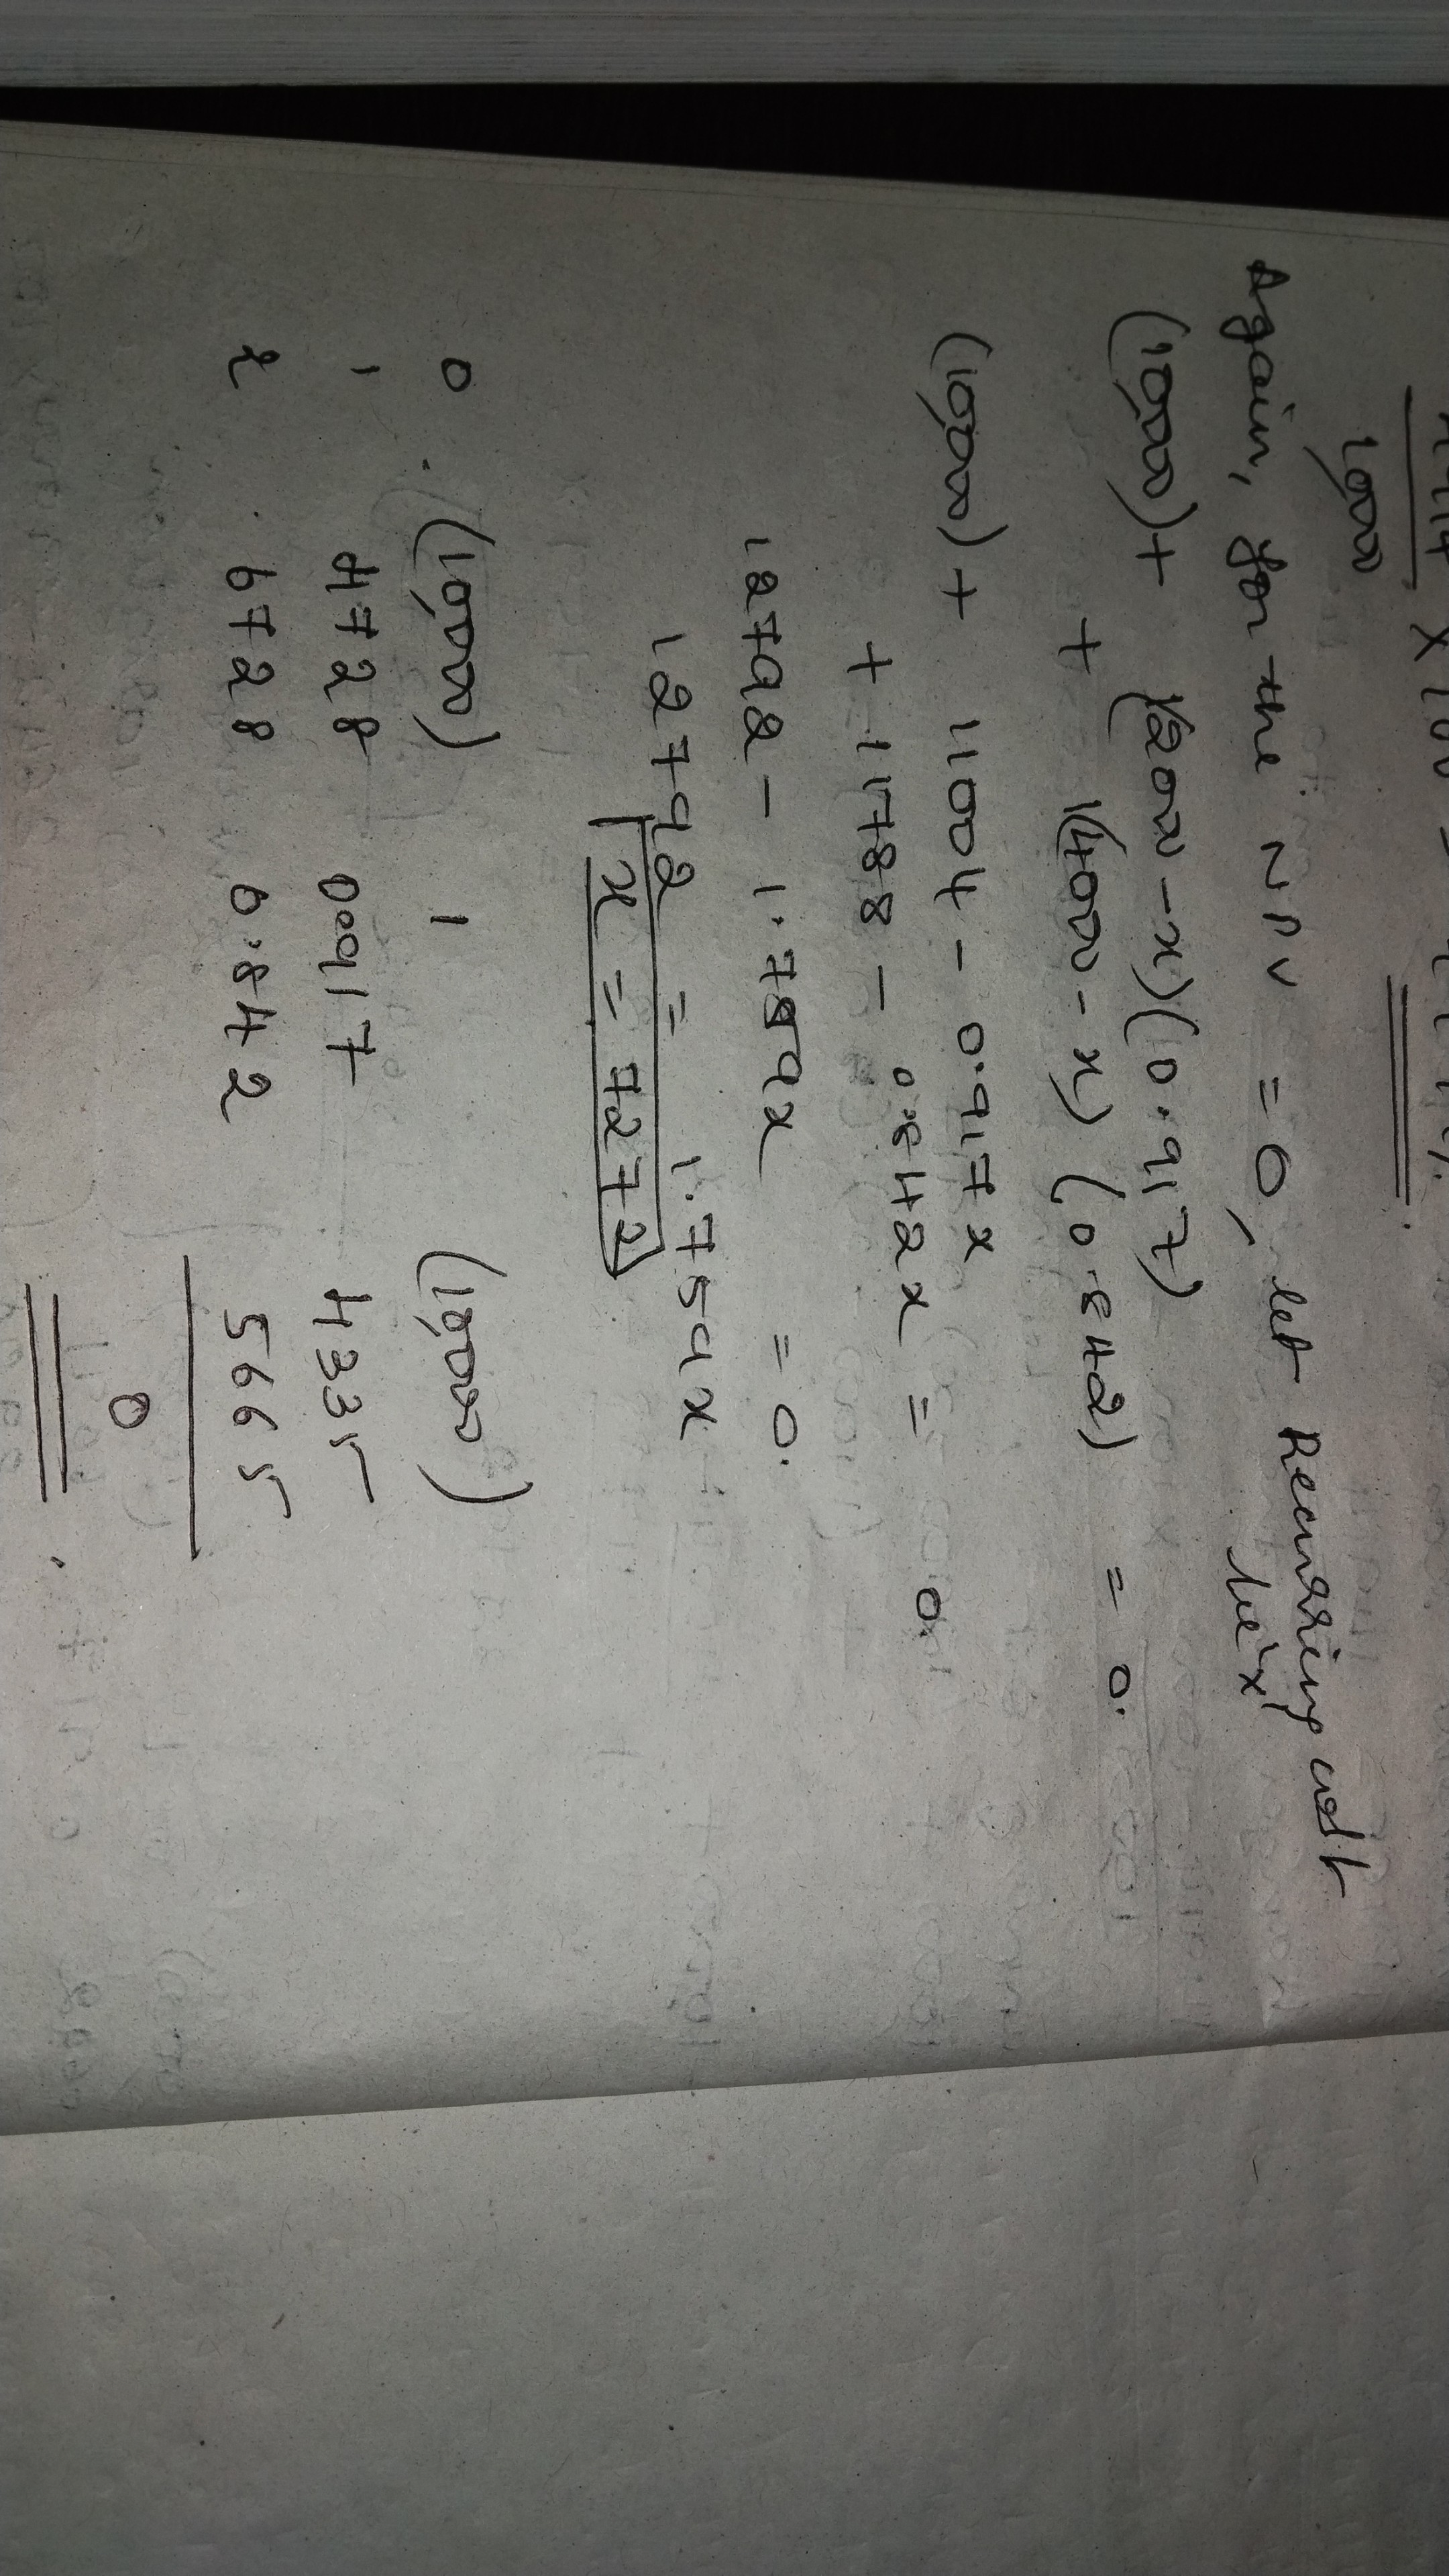 1,000
X 100 =
Again, for the NPV = 0, let Recurring cost
be 'x'
(10,000) + (12000 - x) (0.917)
+ (14000 - x) (0.842) = 0.
(10,000) + 11004 - 0.917x
+ 11788 - 0.842x = 0.
12792 - 1.759x = 0.
12792 = 1.759x
x = 7272
0 (10,000) 1 (10,000)
1 4728 0.917 4335
2 6728 0.842 5665
0